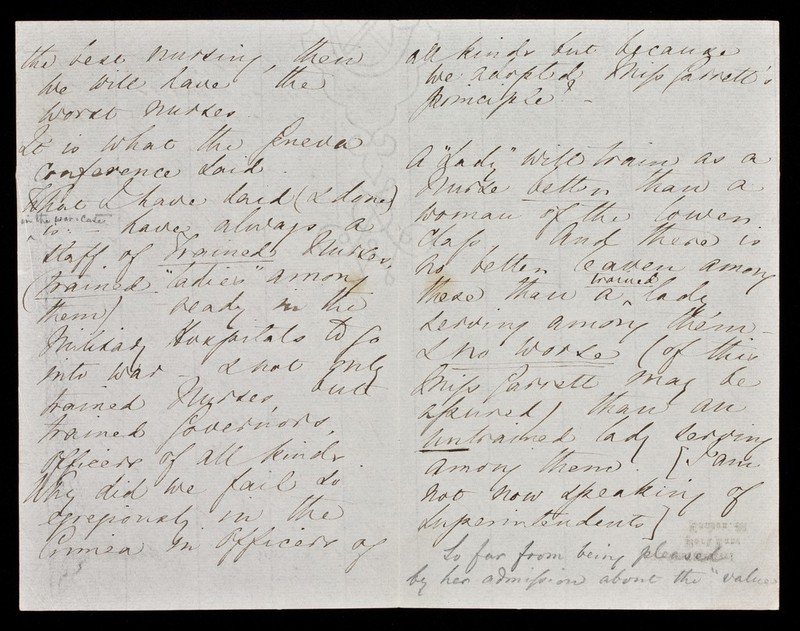 the best nursing, then
we will have the
worst nurses.
It is what the Geneva
Conference said.
What I have said (& done)
in the war-case
is: have always a
staff of trained Nurses,
(trained "ladies" among
them) ready in the
Military Hospitals to go
into war - & not only
trained Nurses, but
trained Governors,
Officers of all kinds.
Why did we fail so
egregiously in the
Crimea in Officers of
all kinds but because
we adopted Miss Garrett's
principle? -
A "lady" will train as a
Nurse better than a
woman of the lower
class. And there is
no better leaven among
trained
these than a lady
serving among them -
& no worse (of this
Miss Garrett may be
assured) than an
untrained lady serving
among them. [I am
not now speaking of
Superintendents]
So far from being pleased
by her admission about the "value